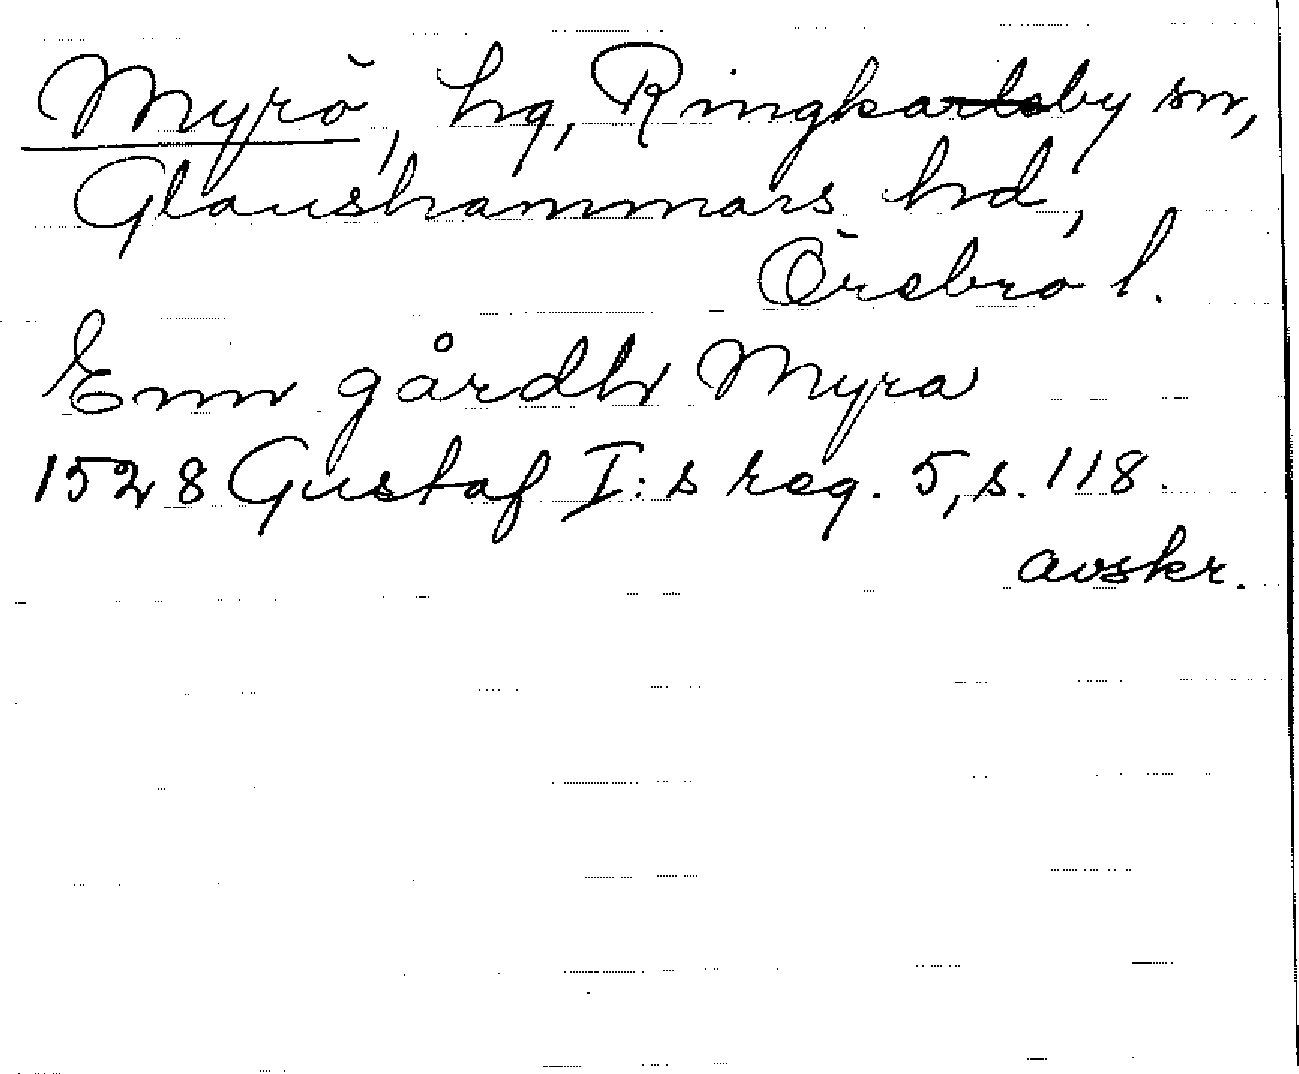 Myrö, hg, Ringkarlsby sn,
Glanshammars hd,
Örebro l.
Enn gårdh Myra
1528 Gustaf I:s reg. 5, s. 118.
avskr.